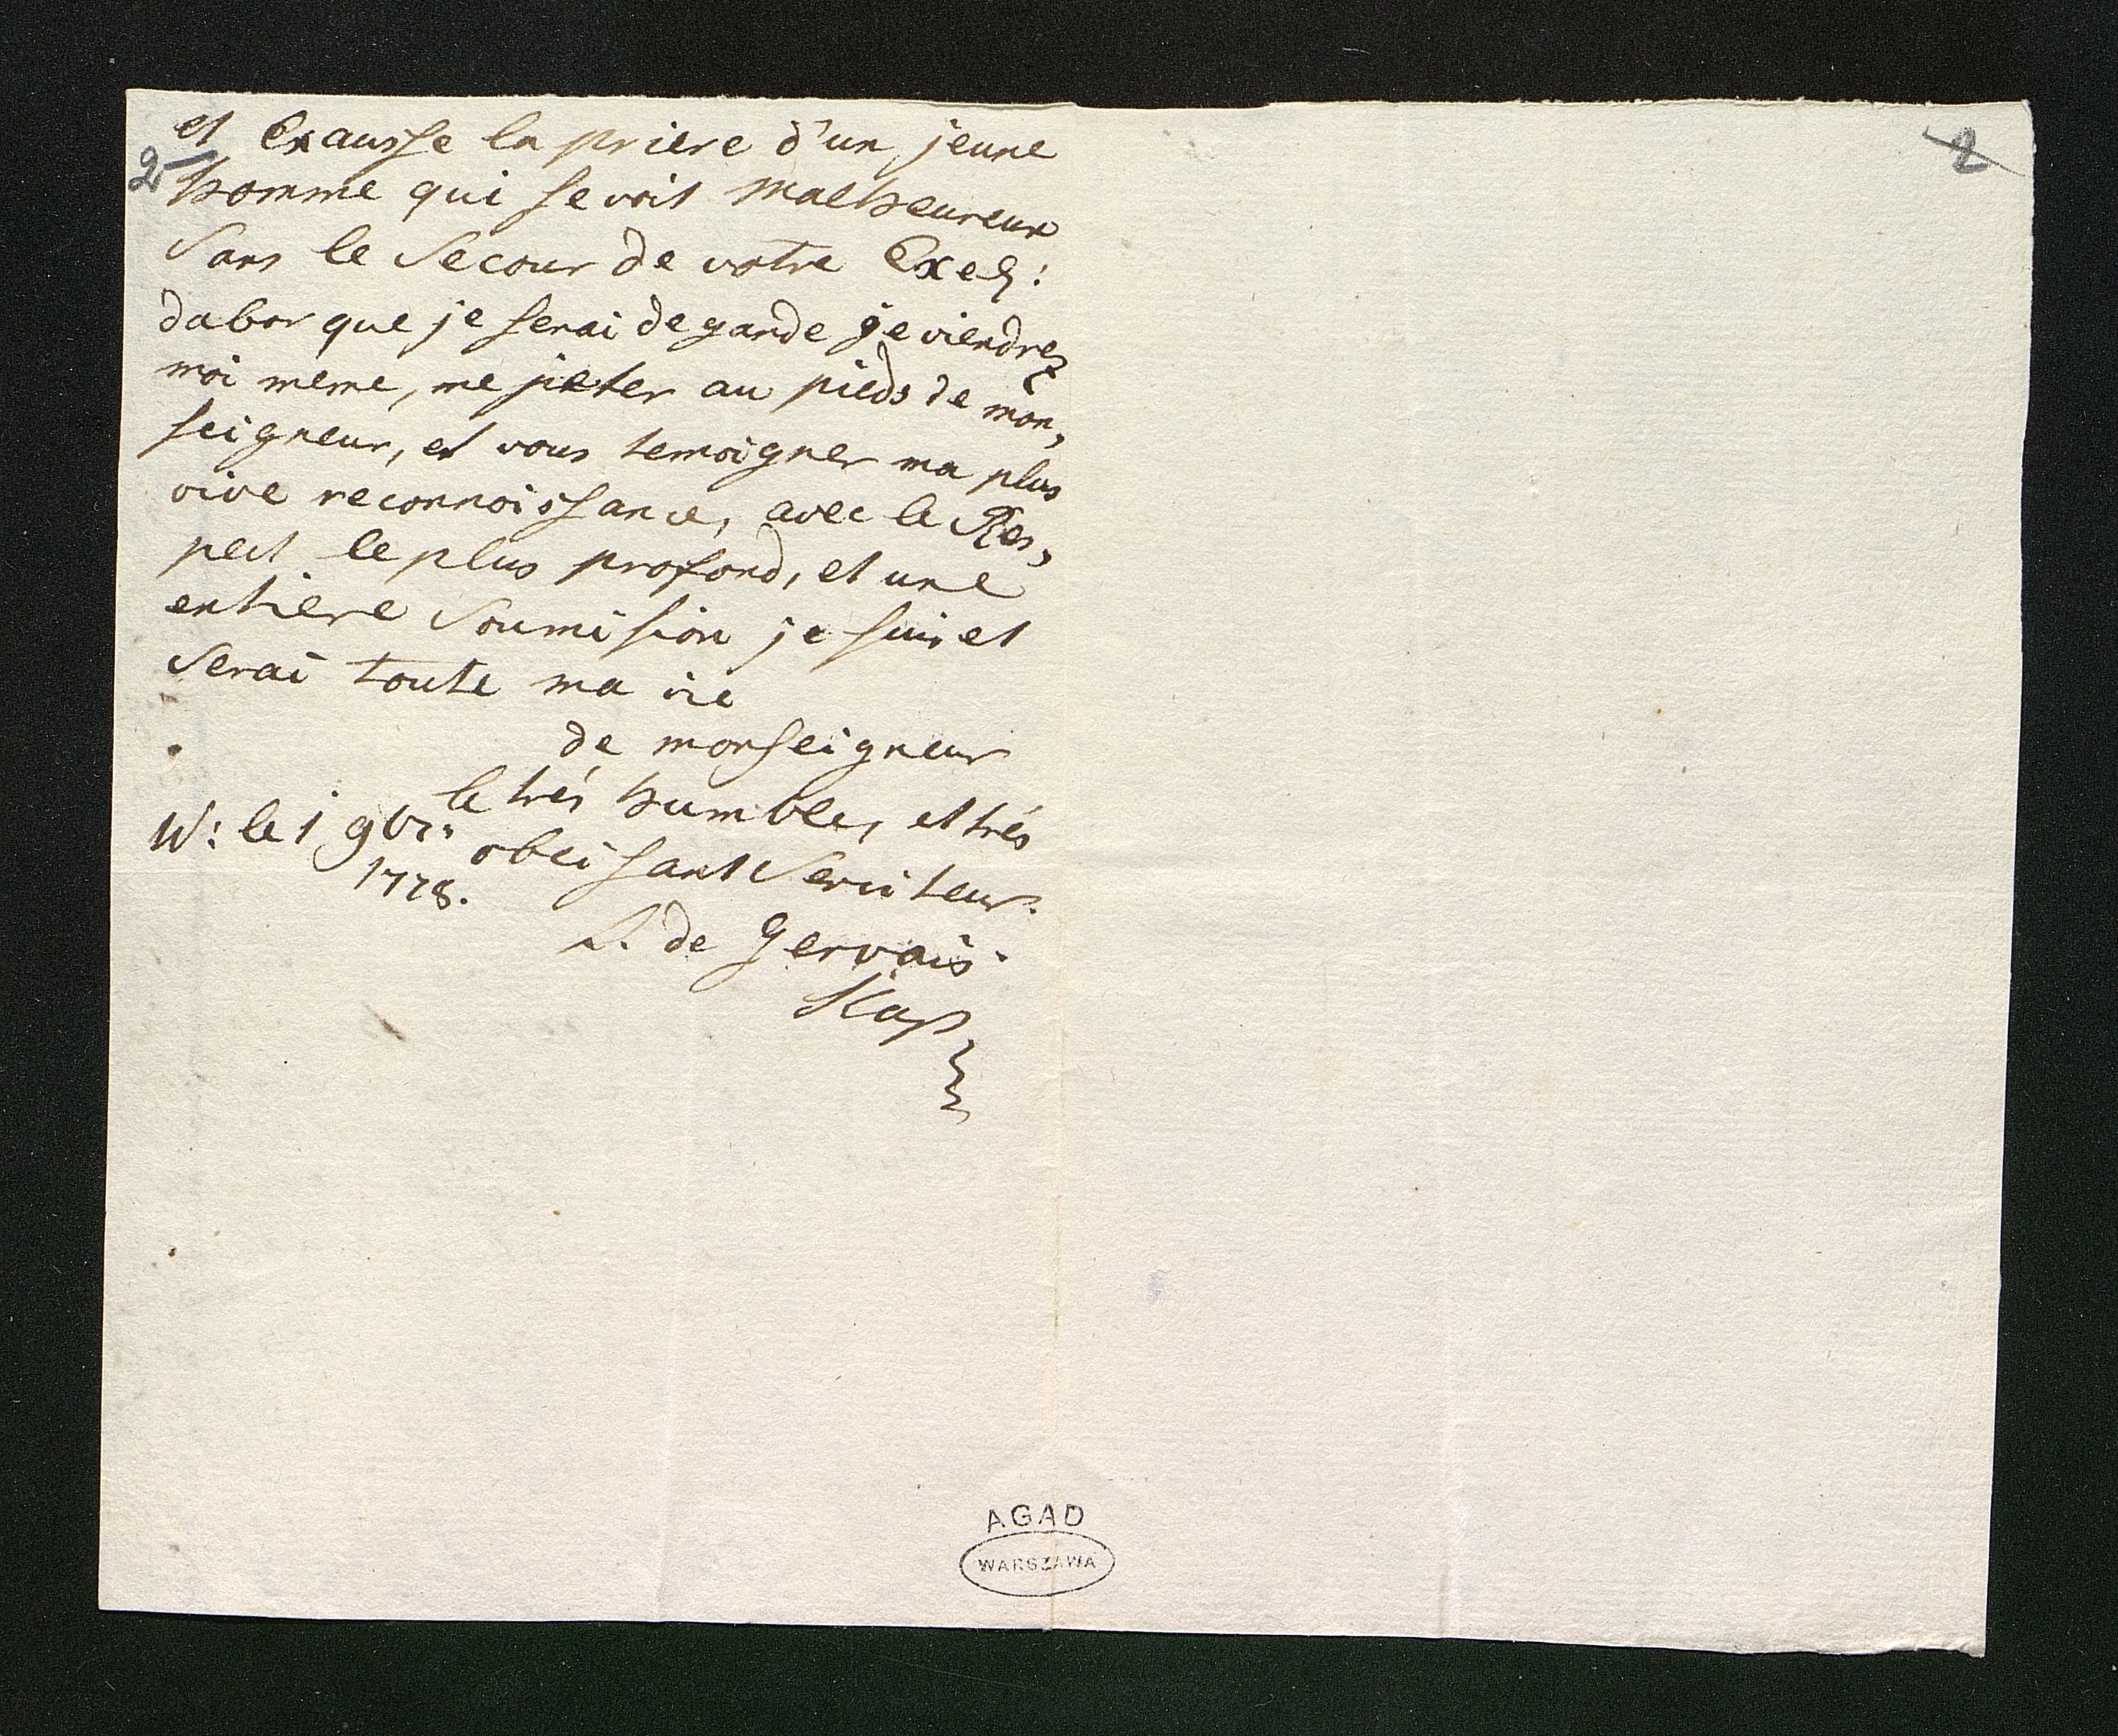 et Exausse la priere d'un jeune
2
homme qui se voit malheureux
Sans le Secour de votre Excell:
dabor que je serai de garde je viendrez
moi meme, me jetter au pieds de mon,
seigneur, et vous temoigner ma plus
vive reconnoissance, avec le Res,
pect le plus profond, et une
entiere Soumision je suis et
Serai toute ma vie
de monseigneur
le trés humble, et trés
W: le 1 9br:
obeisant Serviteur.
1778.
S. de Gervais
Kap
2
AGAD
WARSZAWA